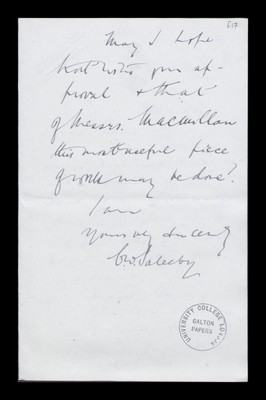 617
May I hope
that with your ap-
proval & that
of Messrs. Macmillan
this most useful piece
of work may be done?
I am
Yours very sincerely
C. W. Saleeby
UNIVERSITY COLLEGE LONDON
GALTON
PAPERS